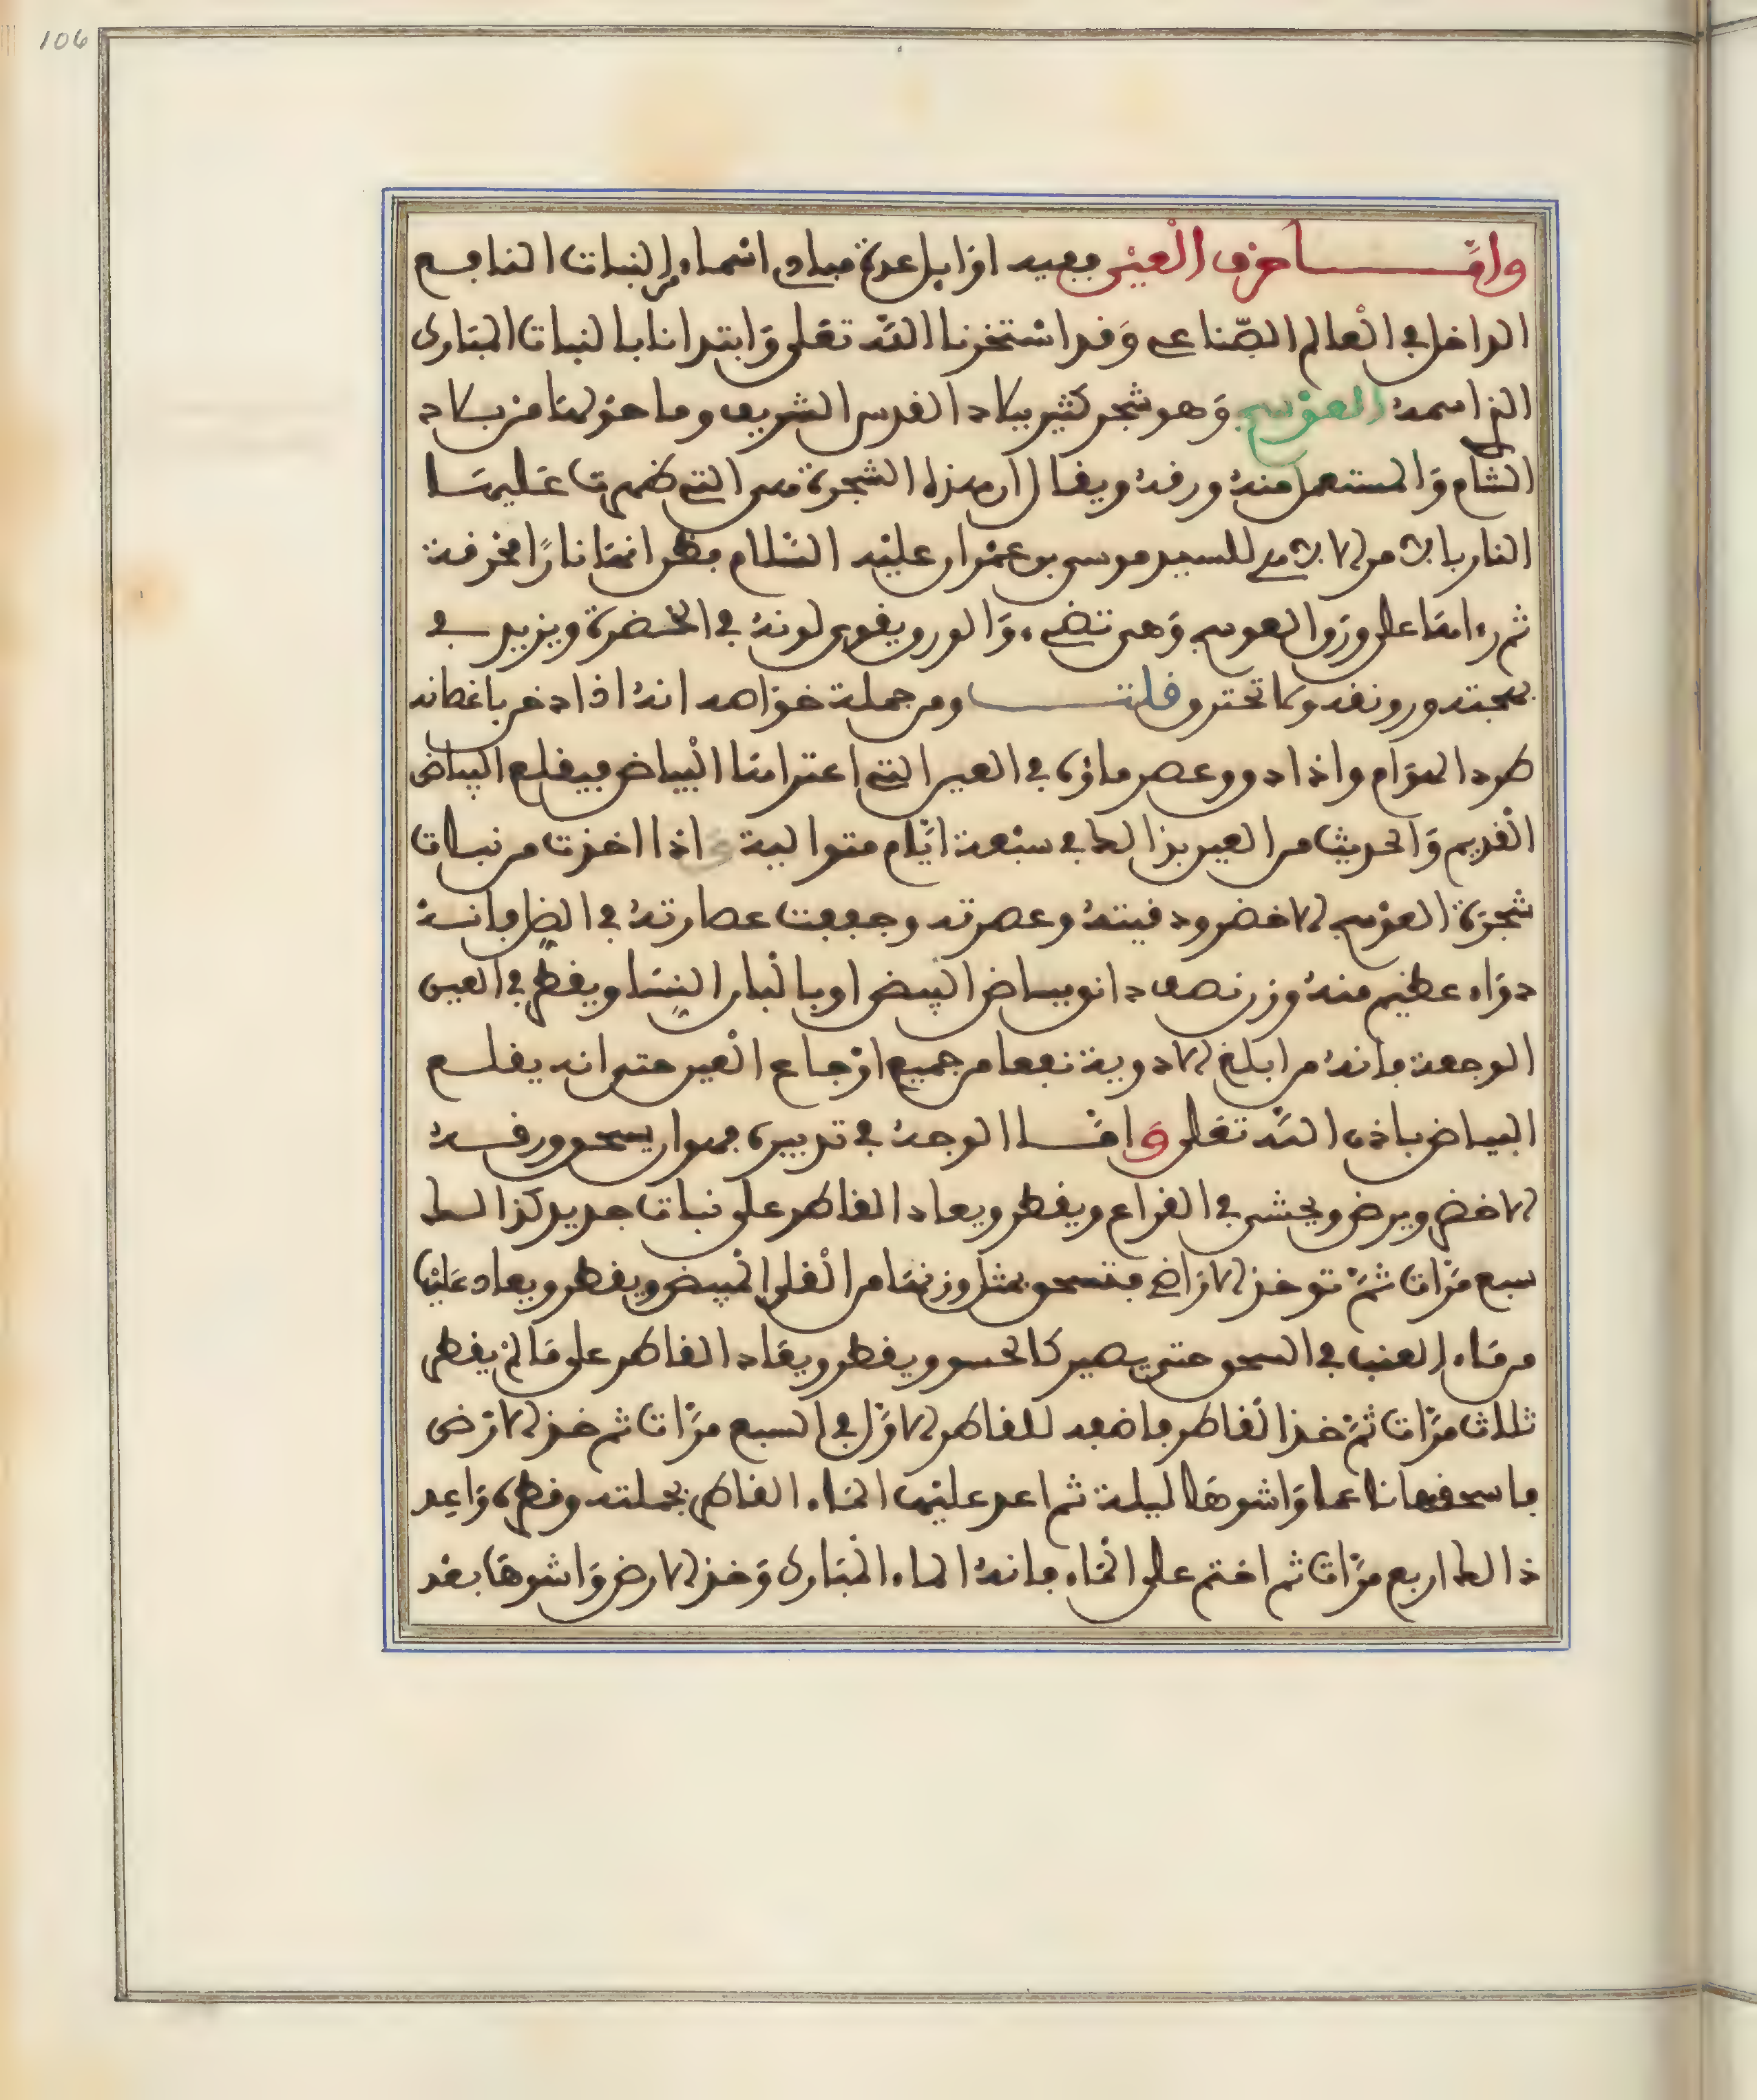 106
وامـــا حرف العين ففيه اوايل عدة مبادي اسماء من النبات النافع
الداخل في العالم الصناعي وقد استخرنا الله تعلى وابتدانا بالنبات المبارك
الذي اسمه العوسج وهو شجر كثير ببلاد القدس الشريف وما حولها من بلاد
الشام والمستعمل منه ورقه ويقال ان هذه الشجرة هي التي ظهرت عليها
النار بالامر الالاهي للسيد موسى بن عمران عليه السلام فظن انها نارا محرقة
ثم رءاها على ورق العوسج وهي تضيء والورق يقوى لونه في الخضرة ويزيد في
بهجته ورونقه ولا تحترق قلتـــ ومن جملة خواصه انه اذا دخن باغصانه
طرد الهوام واذا دق وعصر ماؤه في العين التي اعتراها البياض فيقلع البياض
القديم والحديث من العين بذالك في سبعة ايام متوالية و اذا اخذت من نبات
شجرة العوسج الاخضر ودقيته وعصرته وجففت عصارته في الظل فانه
دواء عظيم منه وزن نصف دانق ببياض البيض او بالبان النسا ويقطر في العين
الوجعة فانه من ابلغ الادوية نفعا من جميع اوجاع العين حتى انه يقلع
البياض باذن الله تعلى وامـا الوجه في تدبيره فهو ان يسحق ورقه
الاخضر ويرض ويحشى في القراع ويقطر ويعاد القاطر على نبات جديد كذالك
سبع مرات ثم توخذ الاراضي فتسحق بمثل وزنها من القلي المبيض ويقطر ويعاد عليها
من ماء العنب في السحق حتى يصير كالحسو ويقطر ويعاد القاطر على ما لم يقطر
ثلاث مرات ثم خذ القاطر فاضفه للقاطر الاول في السبع مرات ثم خذ الارض
فاسحقها ناعما واشوها ليلة ثم اعد عليها الماء القاطر بجملته وقطره واعد
ذالك اربع مرات ثم اختم على الماء فانه الماء المبارك وخذ الارض واشوها بعد